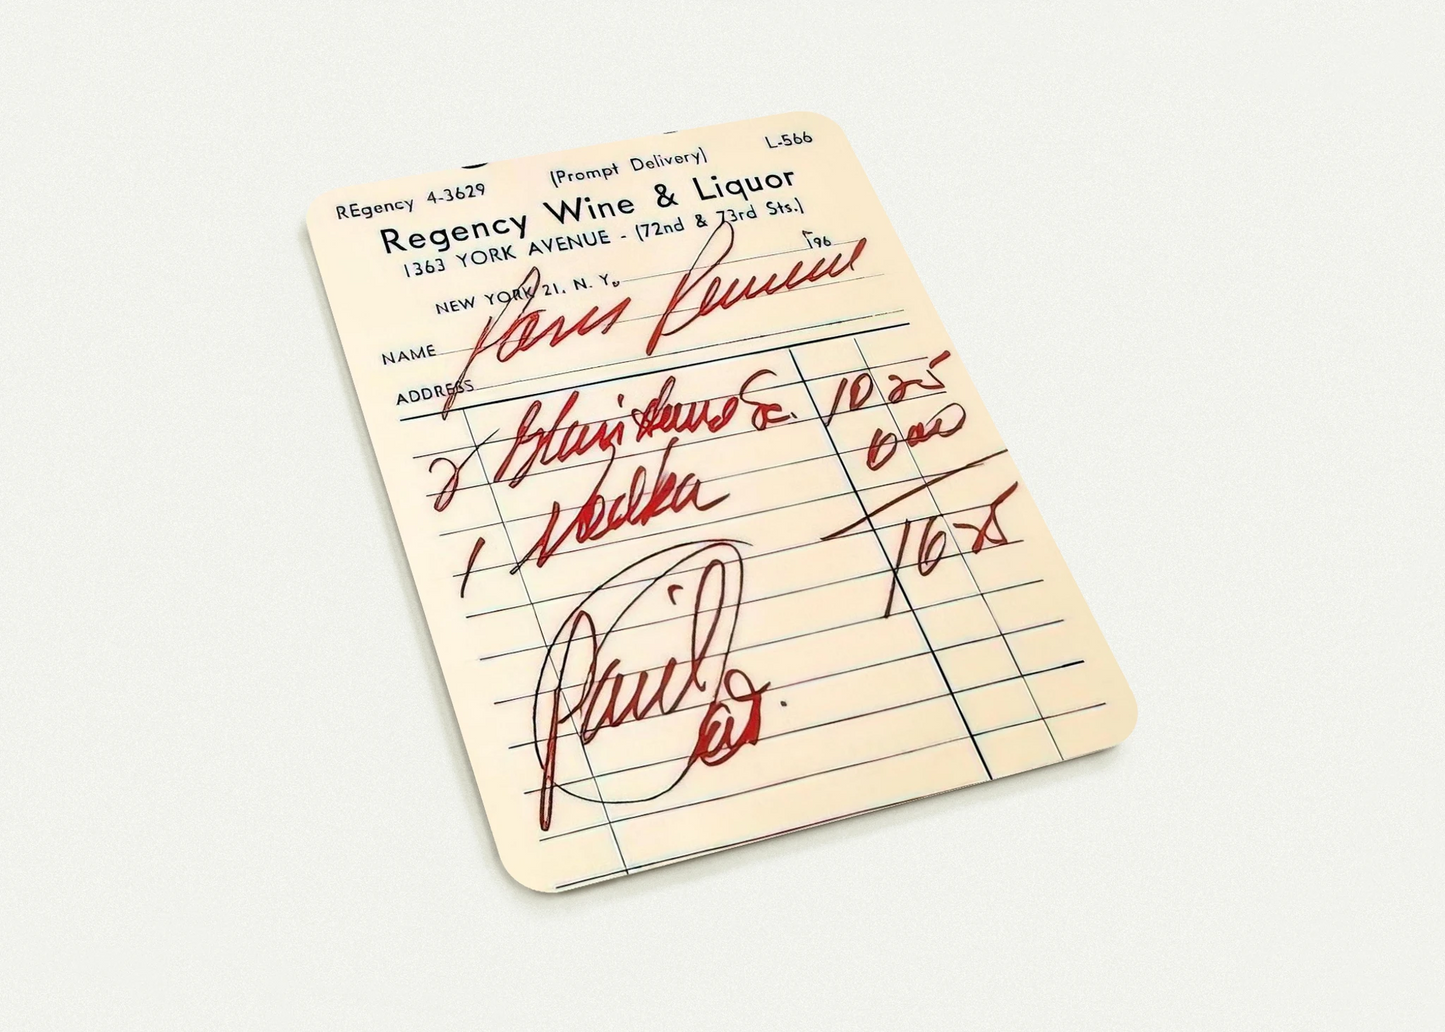 L-566
REgency 4-3629 (Prompt Delivery)
Regency Wine & Liquor
1363 YORK AVENUE - (72nd & 73rd Sts.)
NEW YORK 21, N. Y. 196
NAME
ADDRESS
2 Sc. 10 25
1 Vodka 6 00
16 25
Paid